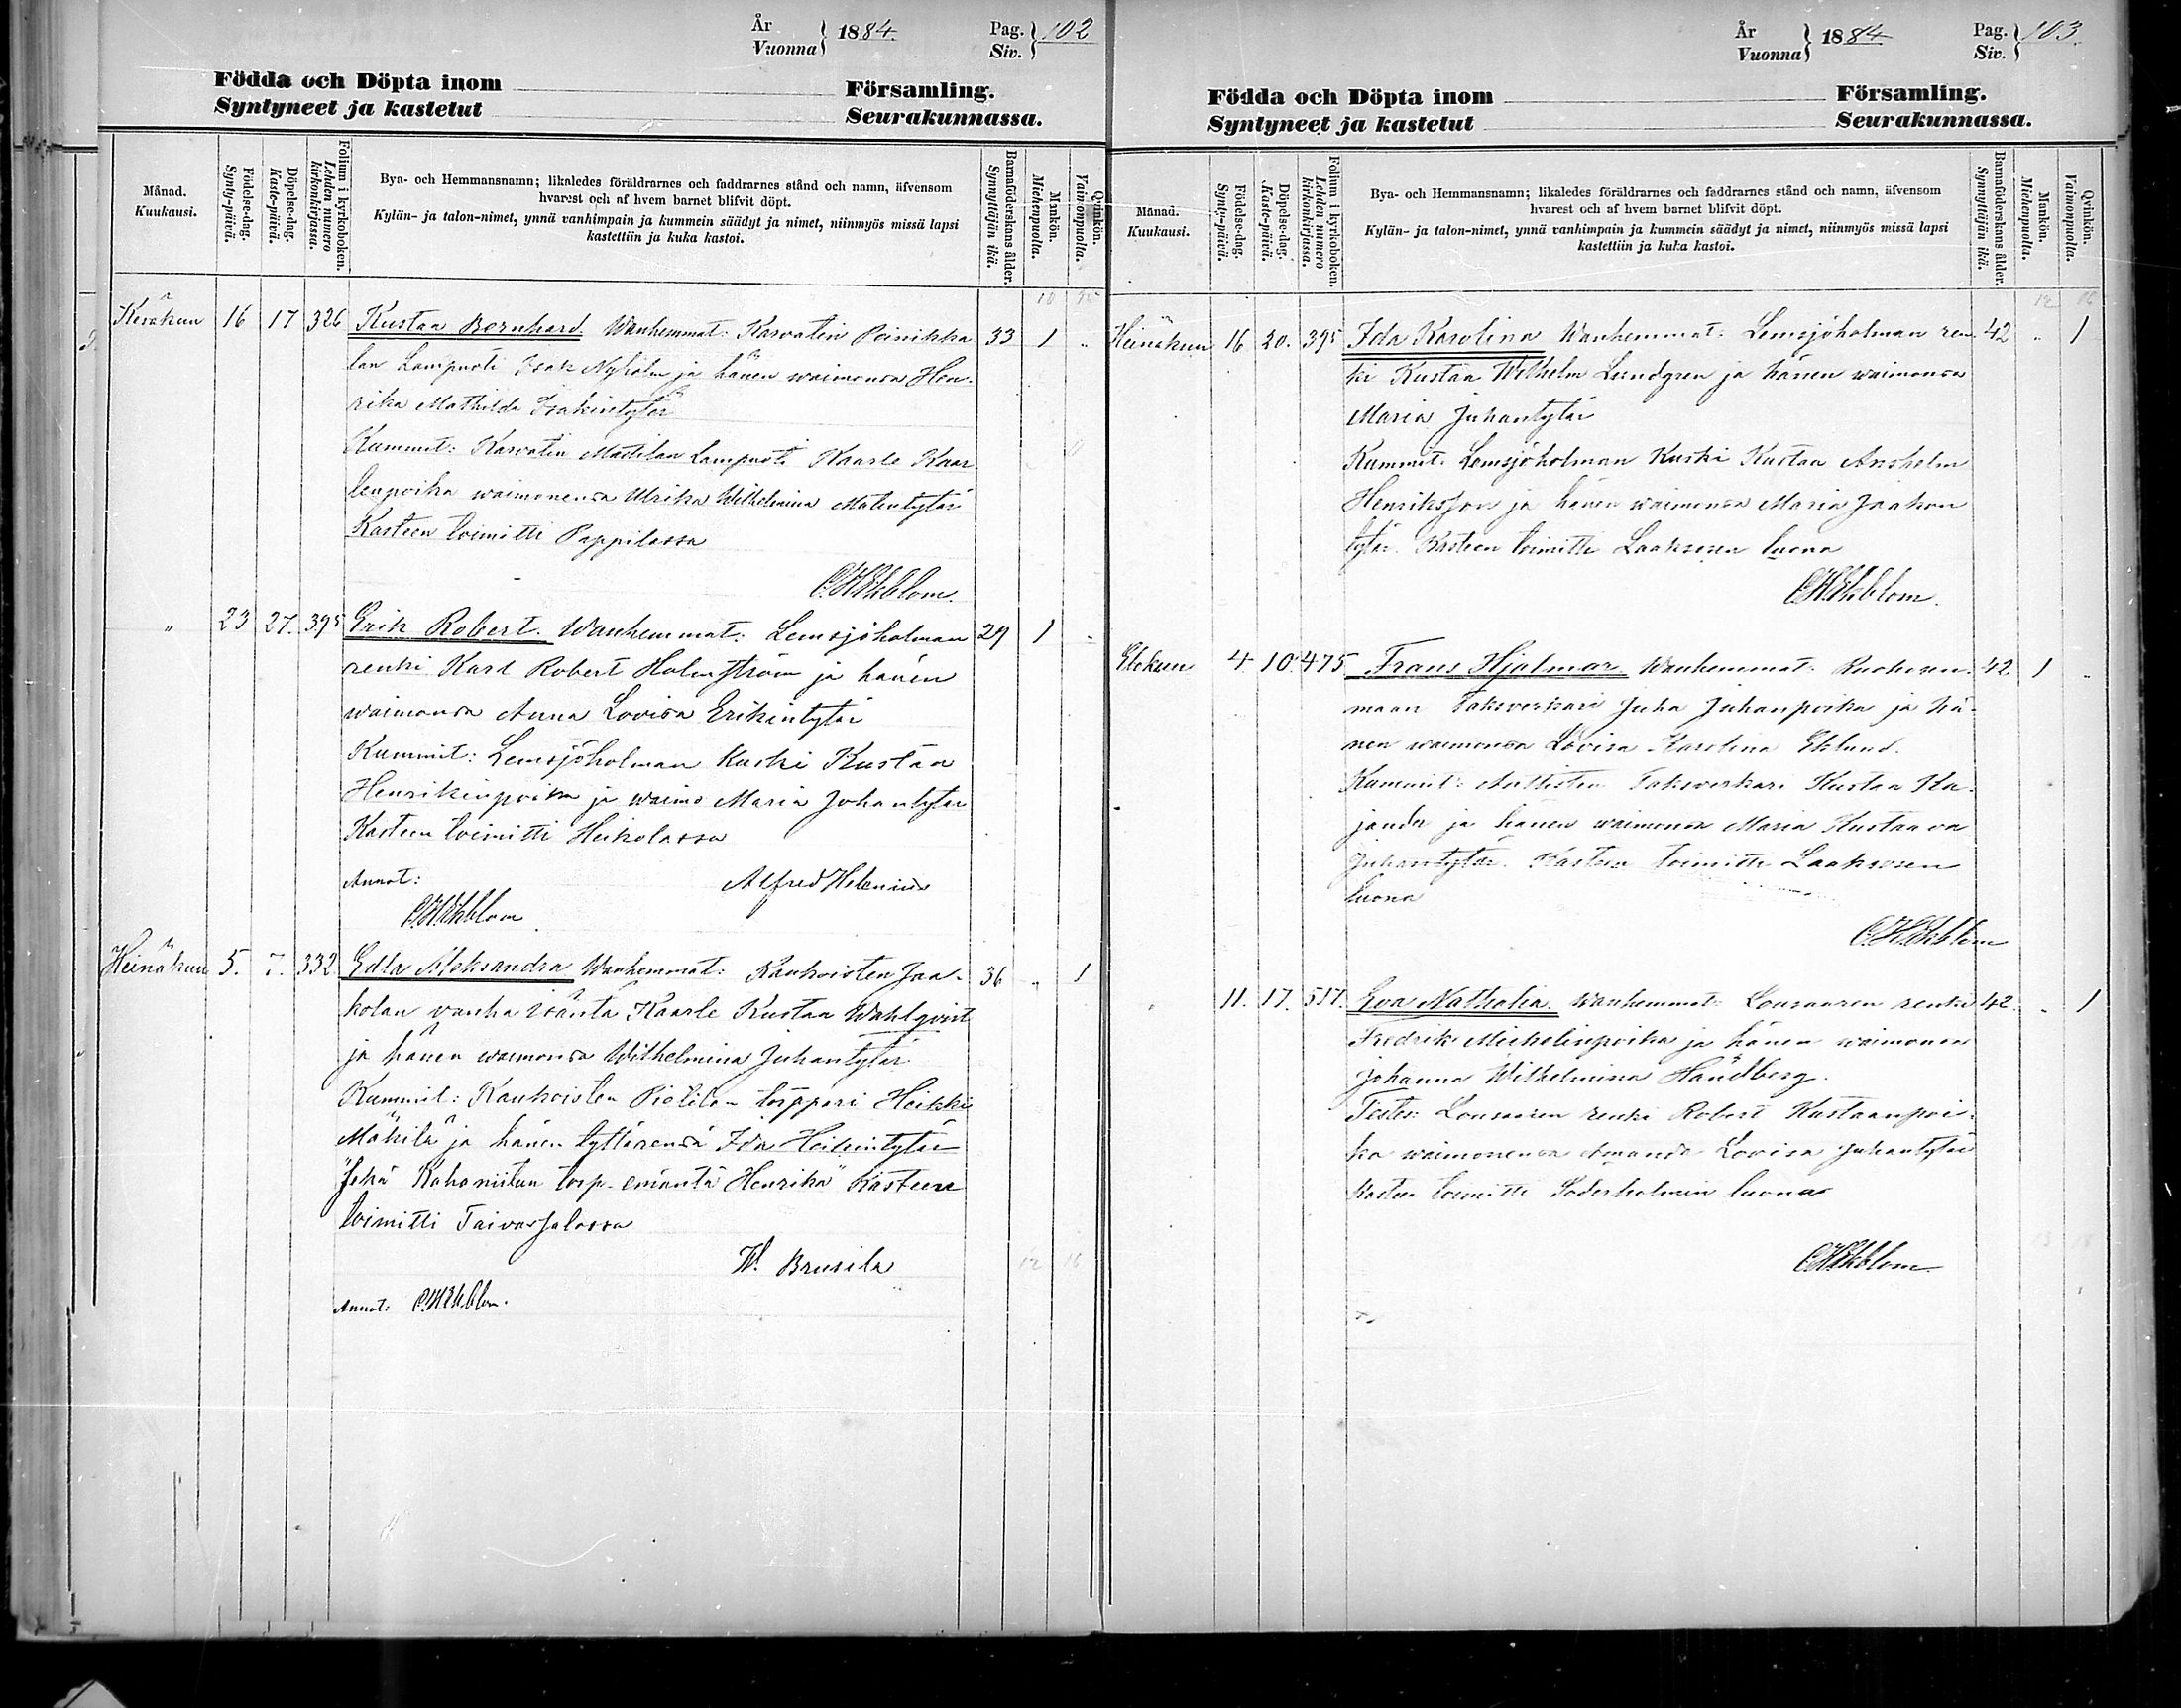 År
Vuonna } 1884.
Pag.
Siv. } 102
Födda och Döpta inom Församling.
Syntyneet ja kastetut Seurakunnassa.
Månad.
Kuukausi.
Födelse-dag.
Synty-päivä.
Döpelse-dag.
Kaste-päivä.
Folium i kyrkoboken.
Lehden numero
kirkonkirjassa.
Bya- och Hemmansnamn; likaledes föräldrarnes och faddrarnes stånd och namn, äfvensom
hvarest och af hvem barnet blifvit döpt.
Kylän- ja talon-nimet, ynnä vanhimpain ja kummein säädyt ja nimet, niinmyös missä lapsi
kastettiin ja kuka kastoi.
Barnaföderskans ålder.
Synnyttäjän ikä.
Mankön.
Miehenpuolta.
Qvinkön.
Vaimonpuolta.
10 15
Kesäkun 16 17 326 Kustaa Bernhard. Wanhemmat: Karvatin Peinikka 33 1 "
lan Lampuoti Isak Nyholm ja hänen waimonsa Hen-
rika Mathilda Isakintytär
Kummit: Karvatin Mattilan Lampuoti Kaarle Kaar
lenpoika waimonensa Ulrika Wilhelmina Matintytär
Kasteen toimitti Pappilassa
C.H.Ekblom.
" 23 27. 395 Erik Robert. Wanhemmat: Lemsjöholman 29 1 "
renki Karl Robert Holmström ja hänen
waimonsa Anna Lovisa Erikintytär
Kummit: Lemsjöholman Kuski Kustaa
Henrikinpoika ja waimo Maria Johantytär
Kasteen toimitti Heikolassa
Annot: Alfred Helenius
C.H.Ekblom
Heinäkun 5. 7. 332. Edla Aleksandra Wanhemmat: Kankoisten Jaa- 36 " 1
kolan vanha isäntä Kaarle Kustaa Wahlqvist
ja hänen waimonsa Wilhelmina Juhantytär
Kummit: Kankoisten Pietilän torppari Heikki
Mäkilä ja hänen tyttärensä Ida Heikintytär
sekä Kahoniitun torp. emäntä Henrika Kasteen
toimitti Taivassalossa
W. Brusila
12 16
Annot: C.H.Ekblom.
År
Vuonna } 1884
Pag.
Siv. } 103.
Födda och Döpta inom Församling.
Syntyneet ja kastetut Seurakunnassa.
Månad.
Kuukausi.
Födelse-dag.
Synty-päivä.
Döpelse-dag.
Kaste-päivä.
Folium i kyrkoboken.
Lehden numero
kirkonkirjassa.
Bya- och Hemmansnamn; likaledes föräldrarnes och faddrarnes stånd och namn, äfvensom
hvarest och af hvem barnet blifvit döpt.
Kylän- ja talon-nimet, ynnä vanhimpain ja kummein säädyt ja nimet, niinmyös missä lapsi
kastettiin ja kuka kastoi.
Barnaföderskans ålder.
Synnyttäjän ikä.
Mankön.
Miehenpuolta.
Qvinkön.
Vaimonpuolta.
12 16
Heinäkun 16 20. 395 Ida Karolina Wanhemmat: Lemsjöholman ren- 42 " 1
ki Kustaa Wilhelm Lundgren ja hänen waimonsa
Maria Juhantytär
Kummit: Lemsjöholman Kuski Kustaa Anshelm
Henriksson ja hänen waimonsa Maria Jaakon
tytär. Kasteen toimitti Laaksosen luona
C.H.Ekblom.
Elokun 4 10. 475 Frans Hjalmar. Wanhemmat: 42 1 "
maan Taksverkari Juha Juhanpoika ja hä-
nen waimonsa Lovisa Karolina Eklund.
Kummit: Anttisten Taksverkari Kustaa Ka-
jander ja hänen waimonsa Maria Kustaava
Juhantytär. Kasteen toimitti Laaksosen
luona
C.H.Ekblom
" 11. 17. 517. Eva Nathalia. Wanhemmat: Lousaaren renki 42. " 1
Fredrik Mickelinpoika ja hänen waimonsa
Johanna Wilhelmina Händberg.
Testes: Lousaaren renki Robert Kustaanpoi-
ka waimonensa Amanda Lovisa Juhantytär
Kasteen toimitti Söderholmin luona
13 18
C.H.Ekblom